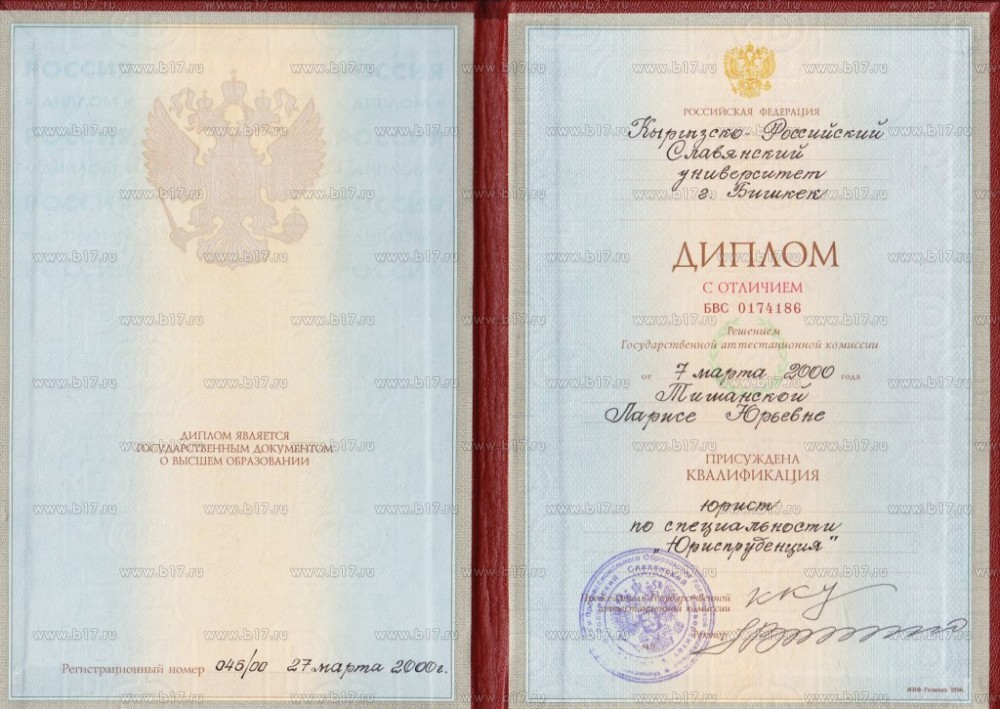 ДИПЛОМ ЯВЛЯЕТСЯ
ГОСУДАРСТВЕННЫМ ДОКУМЕНТОМ
О ВЫСШЕМ ОБРАЗОВАНИИ
Регистрационный номер 046/00 27 марта 2000г.
РОССИЙСКАЯ ФЕДЕРАЦИЯ
Кыргызско-Российский
Славянский
университет
г. Бишкек
ДИПЛОМ
С ОТЛИЧИЕМ
БВС 0174186
Решением
Государственной аттестационной комиссии
от 7 марта 2000 года
Тишанской
Ларисе Юрьевне
ПРИСУЖДЕНА
КВАЛИФИКАЦИЯ
юрист
по специальности
"Юриспруденция"
Председатель Государственной
аттестационной комиссии
Ректор
www.b17.ru